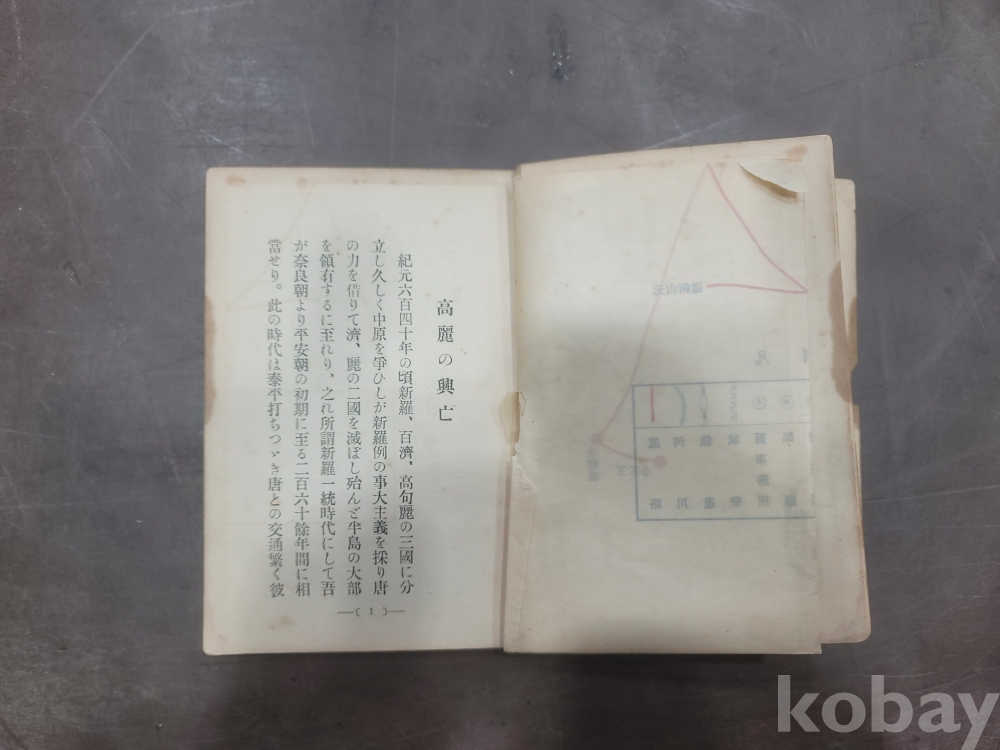 高麗の興亡
紀元六百四十年の頃新羅、百濟、高句麗の三國に分
立し久しく中原を爭ひしが新羅例の事大主義を採り唐
の力を借りて濟、麗の二國を滅ぼし殆んど半島の大部
を領有するに至れり、之れ所謂新羅一統時代にして吾
が奈良朝より平安朝の初期に至る二百六十餘年間に相
當せり。此の時代は泰平打ちつゞき唐との交通繁く彼
—( 1 )—
凡
道路
河川
鐵道
城壁
面事務所
kobay